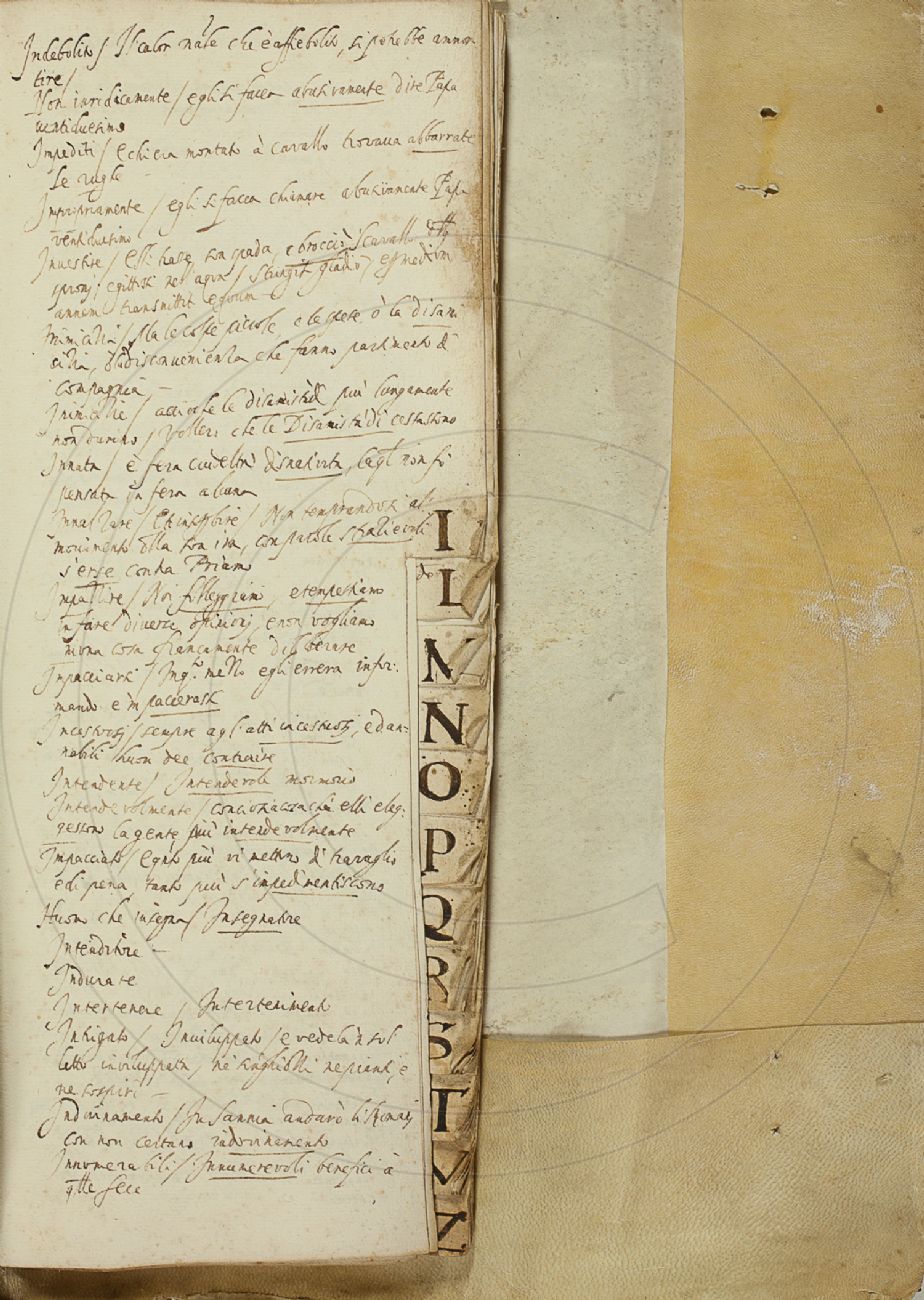 Indebolito / Il calor nāle che è affiebolito, si potrebbe ammor
tire /
Non iuridicamente / egli si facea abusivamente dire Papa
ventiduesimo
Impediti / E chi era montato à cavallo trovava abbarrate
le rughe
Impropriamente / egli si facea chiamare abusivamente Papa
ventiduesimo
Investire / Elli hase sua spada, e broccio's cavallo
sproni; e gittosi nell'agua / stringit gladio / et medium
amnem transmittit equum
Inimicitia / Ma le cose picciole, e legiere, ò la disami
citia, disconvenienza che fanno partimento di
compagnia
Inimicitie / acciochè le disamistà più lungamente
non durino / Volle: che le Disamistà di cessassono
Innata / è fera crudeltà disnaturata, la non fu
pensata in fera alcuna
Innalzare / Et insuperbire / Non temprandosi al
movimento della sua ira, con parole straboccievoli
s'erse contra Priamo
Impazzire / Noi folleggiamo, e tempestiamo
in fare diverse opinionj, e non vogliamo
niuna cosa francamente diliberare
Impacciare / Ing. mello egli errera infor:
mando e impaccerasti
Incestuosj / sempre agli atti incestuosj, e dan:
nabili huon dee contraire
Intendente / Intendevole marmorio
Intendevolmente / conciosiacosa chè elli eleg:
gessono la gente più intendevolmente
Impacciato / E quto più vi mettono di travaglio
e di pena, tanto più s'impedimentiscono
Huomo che insegna / Insegnatore
Intenditore
Indurate
Intertenere / Intertenimento
Intrigato / Inviluppato / e vedela'n sol
letto inviluppata, nè singhiotti ne pianti, e
ne sospiri
Indovinamento / In Sannia andarò li Romanj
con non certano indovinamento
Innumerabili / Innumerevoli benefici à
qlle fece
I
L
M
N
O
P
Q
R
S
T
V
Z